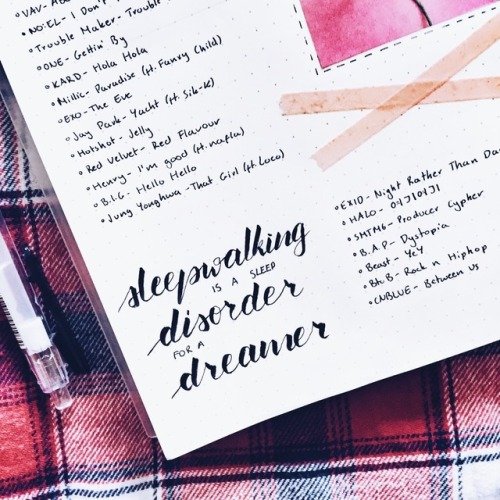 VAV- 
NO:EL- I Don't
Trouble Maker- Trouble
ONE- Gettin' By
KARD- Hola Hola
Millic- Paradise (ft. Fanxy Child)
EXO- The Eve
Jay Park- Yacht (ft. Sik-K)
Hotshot- Jelly
Red Velvet- Red Flavour
Henry- I'm good (ft. nafla)
B.I.G- Hello Hello
Jung Yonghwa -That Girl (ft. Loco)
sleepwalking
IS A SLEEP
disorder
FOR A
dreamer
EXID- Night Rather Than Da
HALO- 04104191
SMTM6- Producer Cypher
B.A.P- Dystopia
Beast- YeY
Blk B- Rock n Hiphop
CNBLUE- Between Us